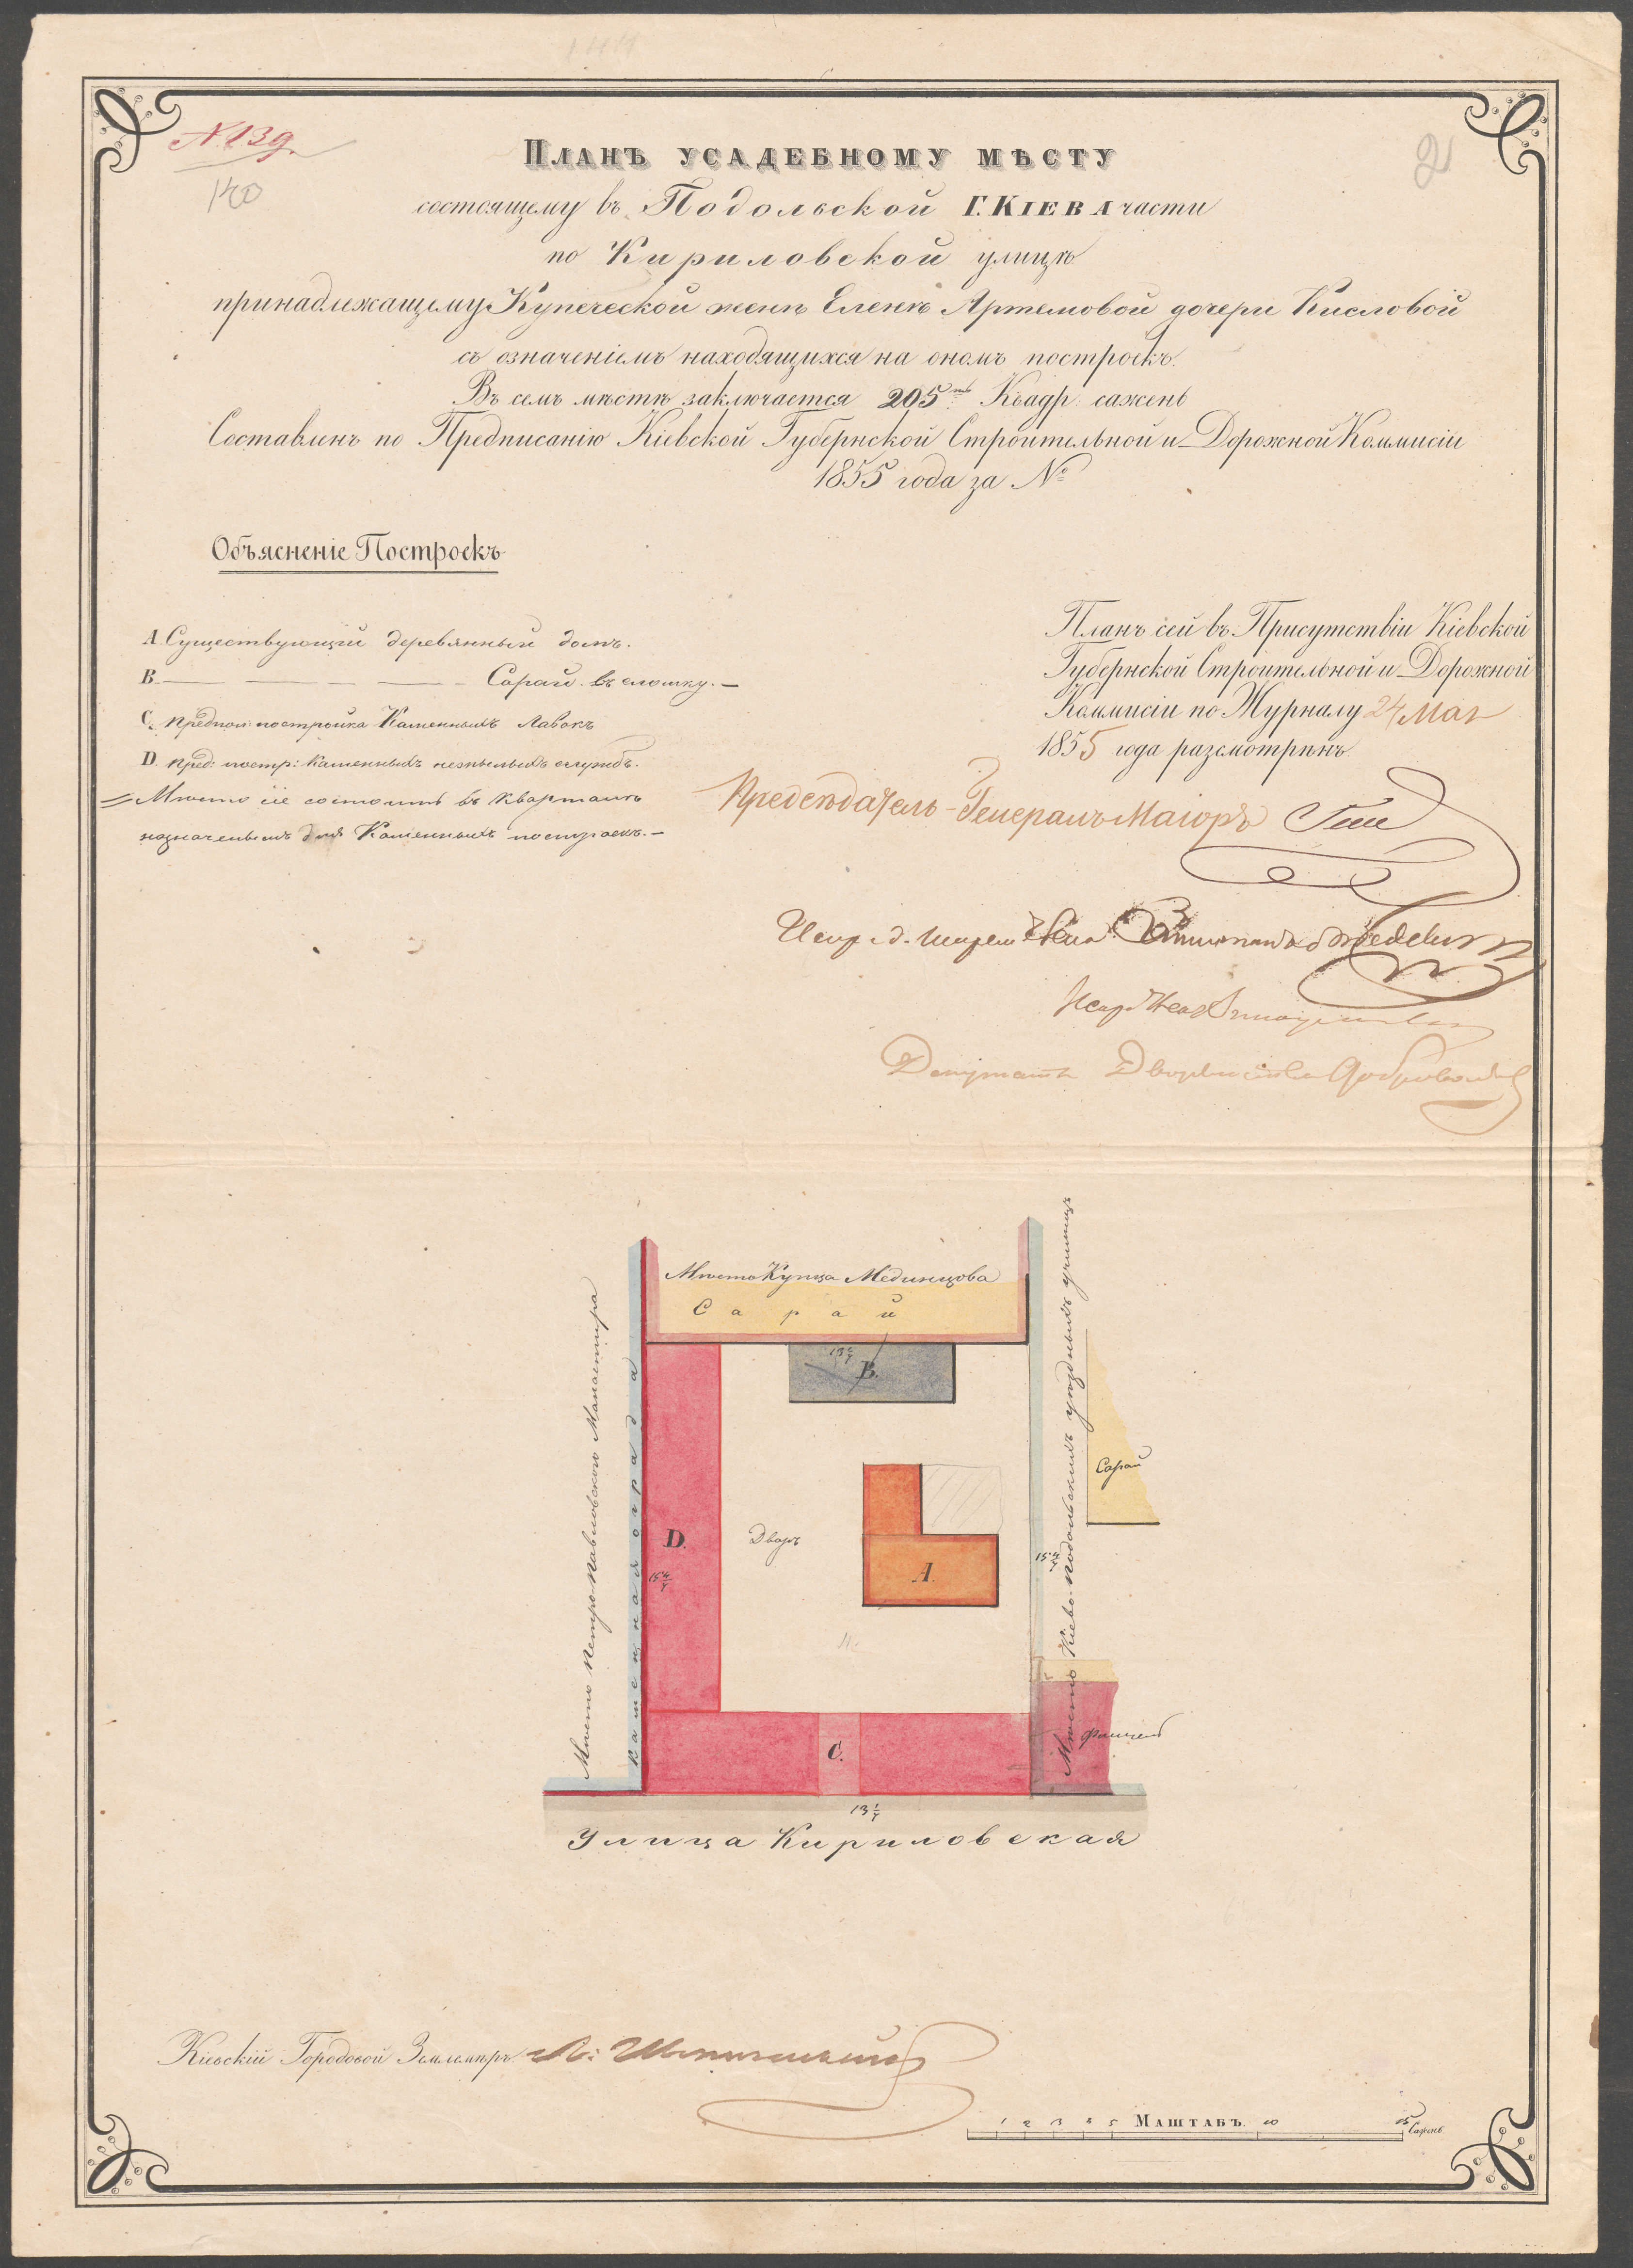 N 139
140
21
Планъ усадебному мѣсту
состоящему въ Подольской Г. Кіева части
по Кириловской улицѣ
принадлежащему Купеческой женѣ Еленѣ Артемовой дочери Кисловой
съ означеніемъ находящихся на ономъ построекъ.
Въ семъ мѣстѣ заключается 205ть Квадр: сажень
Составленъ по Предписанію Кіевской Губернской Строительной и Дорожной Коммисіи
1855 года за №
Объясненіе Построекъ
А. Существующій деревянный домъ.
В. — — — Сарай въ сломку. —
С. предпол: постройка Каменныхъ Лавокъ
D. пред: постр: Каменныхъ нежилыхъ службъ.
Место сіе состоитъ въ кварталѣ
назначеныхъ для Каменныхъ построекъ. —
Планъ сей въ Присутствіи Кіевской
Губернской Строительной и Дорожной
Коммисіи по Журналу 24 Мая
1855 года разсмотрѣнъ
Предсѣдатель - Генералъ Маіоръ
Депутатъ Дворянства
Место Купца Мединцова
Сарай
В.
Место Петро Павловского Манастира
каменная ограда
D.
15 4/7
Дворъ
А.
15 4/7
Место Кіево-подольскихъ уѣздныхъ училищъ
Сарай
С.
флигель
13 1/7
Улица Кириловская
Кіевскій Городовой Землемѣръ
1 2 3 4 5 Маштабъ. 10 15 Сажень